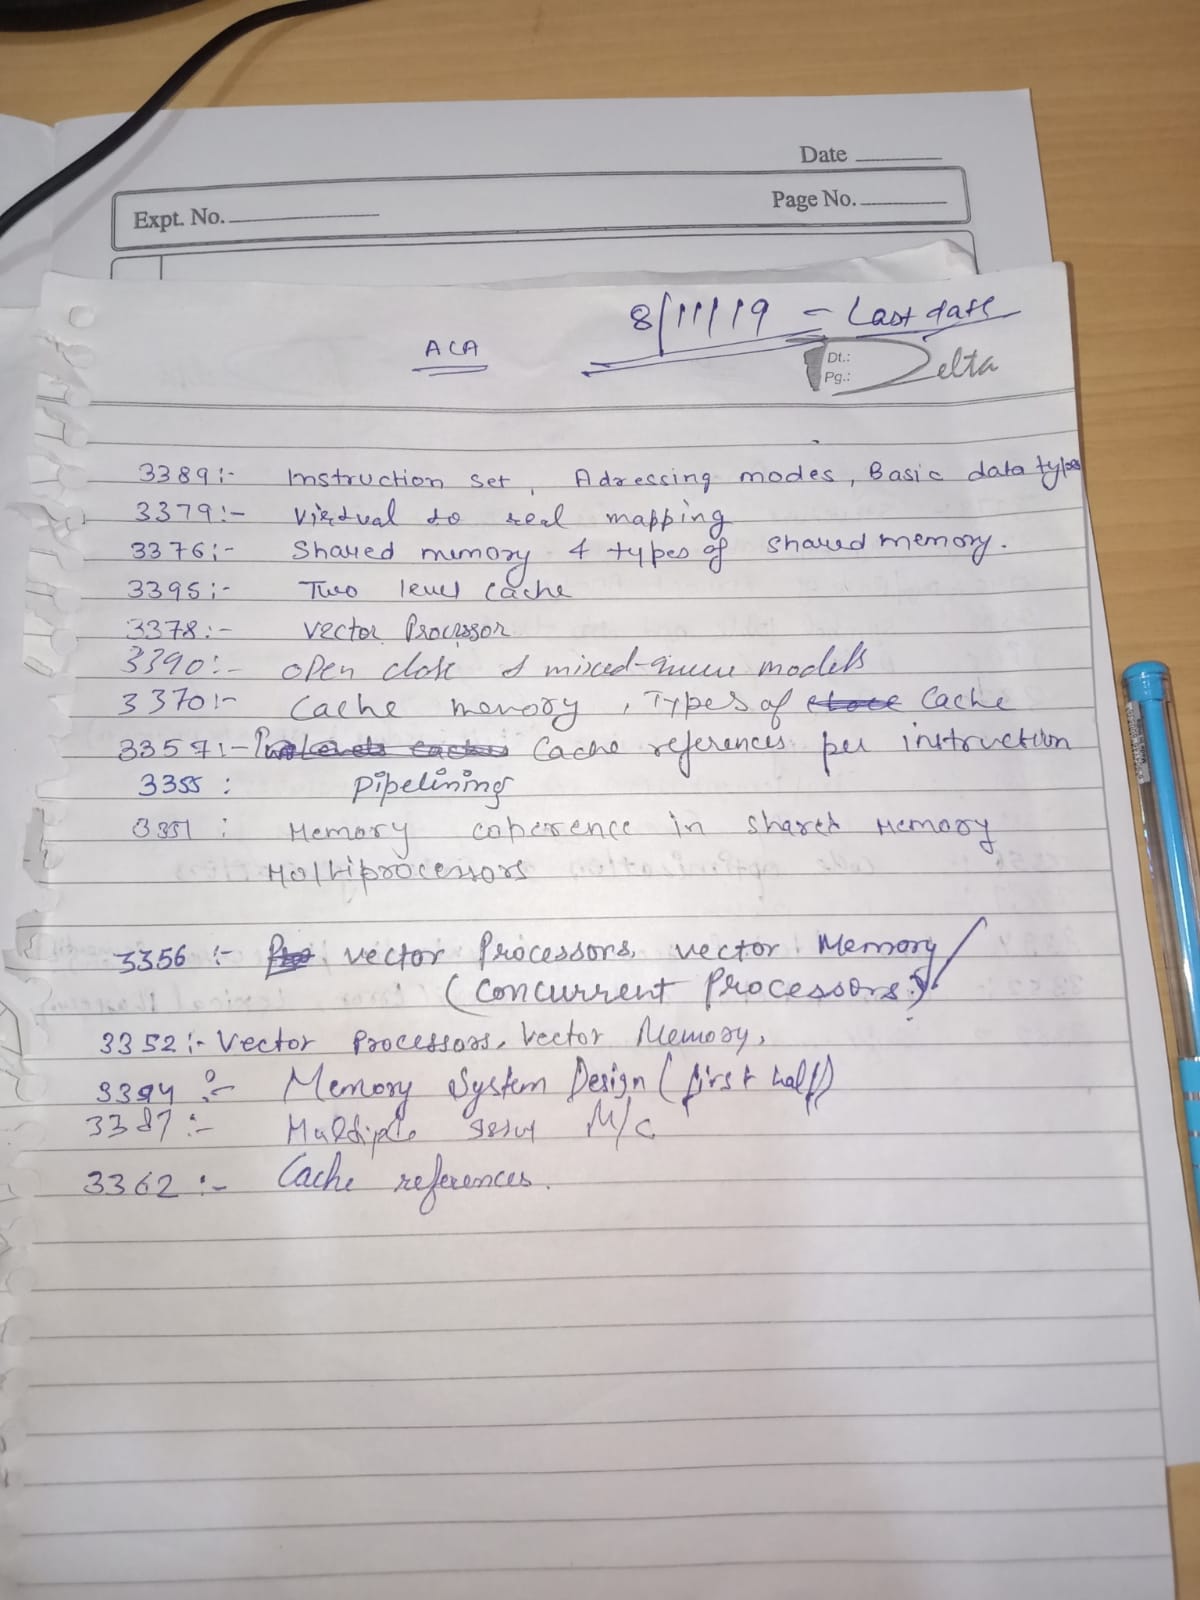 Date
Page No.
Expt. No.
8/11/19 - Last date
ACA
Dt.:
Pg.:
Delta
3389:- Instruction set, Adressing modes, Basic data types
3379:- Virtual to real mapping
3376:- Shared memory & types of shared memory.
3395:- Two level cache
3378:- Vector Processor
3390:- open close & mixed-queue models
3370:- Cache memory, Types of Cache
3357:- Cache references per instruction
3355: Pipelining
3351: Memory coherence in shared Memory
Multiprocessors
3356:- vector Processors, vector Memory
(Concurrent Processors)
3352:- Vector Processors, Vector Memory,
3394:- Memory System Design (first half)
3387:- Multiple issue M/c
3362:- Cache references.